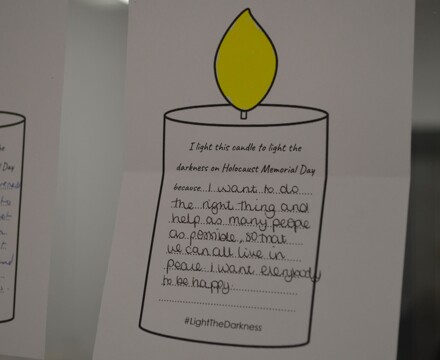 I light this candle to light the
darkness on Holocaust Memorial Day
because I want to do
the right thing and
help as many people
as possible, so that
we can all live in
peace. I want everybody
to be happy.
#LightTheDarkness